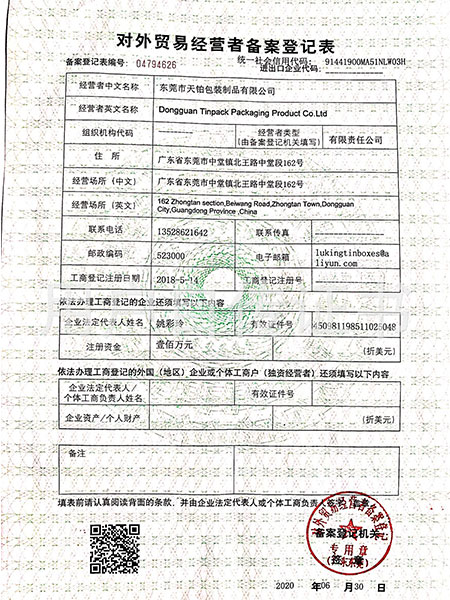 对外贸易经营者备案登记表
备案登记表编号: 04794626
统一社会信用代码: 91441900MA51NLW03H
进出口企业代码:
经营者中文名称 东莞市天铂包装制品有限公司
经营者英文名称 Dongguan Tinpack Packaging Product Co.Ltd
组织机构代码 ---------- 经营者类型
(由备案登记机关填写) 有限责任公司
住 所 广东省东莞市中堂镇北王路中堂段162号
经营场所（中文） 广东省东莞市中堂镇北王路中堂段162号
经营场所（英文） 162 Zhongtan section,Beiwang Road,Zhongtan Town,Dongguan
City,Guangdong Province ,China
联系电话 13528621642 联系传真
邮政编码 523000 电子邮箱 lukingtinboxes@a
liyun.com
工商登记注册日期 2018-5-14 工商登记注册号
依法办理工商登记的企业还须填写以下内容
企业法定代表人姓名 姚彩玲 有效证件号 450981198511025048
注册资金 壹佰万元 (折美元)
依法办理工商登记的外国（地区）企业或个体工商户（独资经营者）还须填写以下内容
企业法定代表人/
个体工商负责人姓名 有效证件号
企业资产/个人财产 (折美元)
备注
填表前请认真阅读背面的条款，并由企业法定代表人或个体工商负责人签字、盖章
对外贸易经营者备案登记
备案登记机关
专用章
(签 章)
广东东莞
2020 年 06 月 30 日